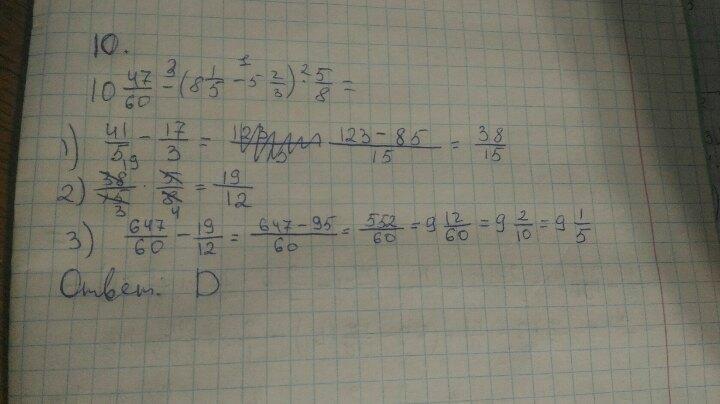 10.
10 47/60 - (8 1/5 - 5 2/3) · 5/8 =
1) 41/5 - 17/3 = (123 - 85)/15 = 38/15
2) 38/15 · 5/8 = 19/12
3) 647/60 - 19/12 = (647 - 95)/60 = 552/60 = 9 12/60 = 9 2/10 = 9 1/5
Ответ: D